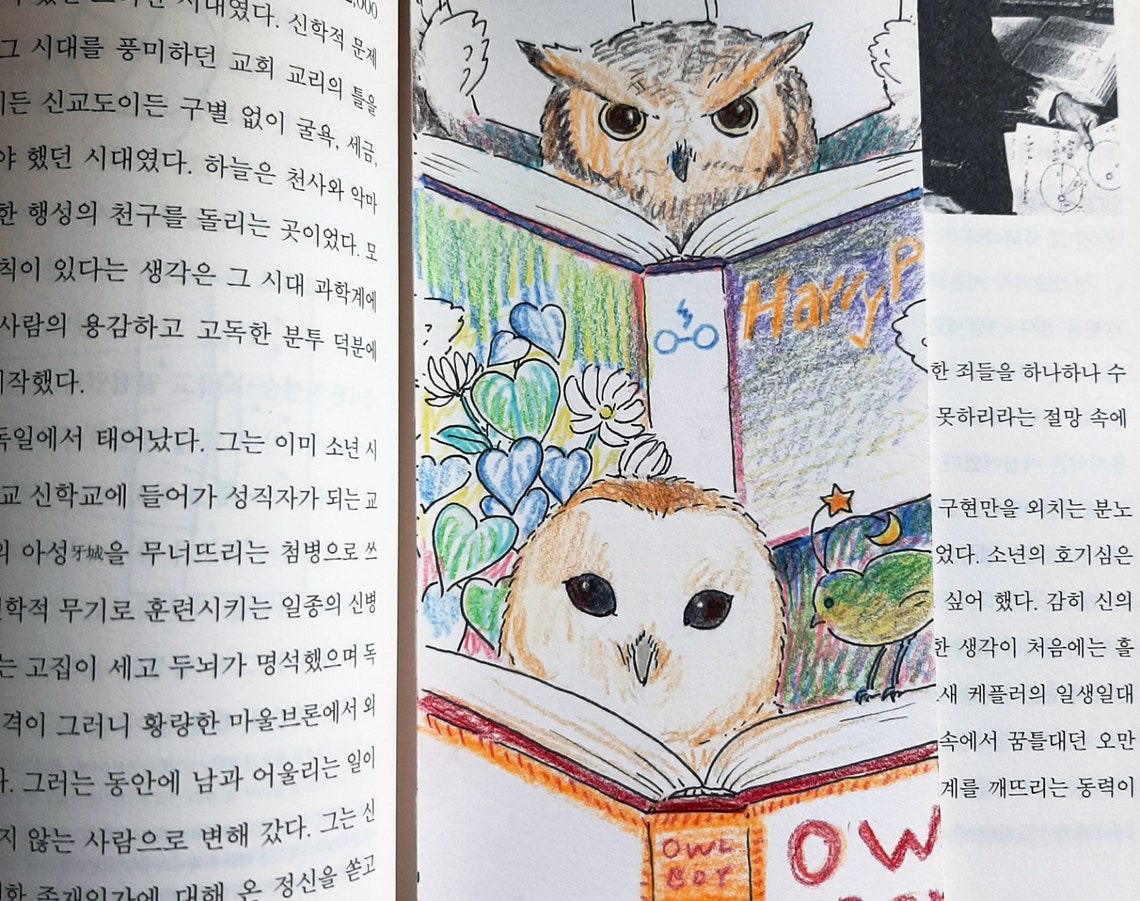 시대였다. 신학적 문제
그 시대를 풍미하던 교회 교리의 틀을
신교도이든 구별 없이 굴욕, 세금,
했던 시대였다. 하늘은 천사와 악마
한 행성의 천구를 돌리는 곳이었다. 모
칙이 있다는 생각은 그 시대 과학계에
사람의 용감하고 고독한 분투 덕분에
작했다.
독일에서 태어났다. 그는 이미 소년 시
교 신학교에 들어가 성직자가 되는 교
의 아성牙城을 무너뜨리는 첨병으로 쓰
학적 무기로 훈련시키는 일종의 신병
는 고집이 세고 두뇌가 명석했으며 독
격이 그러니 황량한 마울브론에서 외
다. 그러는 동안에 남과 어울리는 일이
지 않는 사람으로 변해 갔다. 그는 신
대해 온 정신을 쏟고
Harry P
OWL
BOY
OW
한 죄들을 하나하나 수
못하리라는 절망 속에
구현만을 외치는 분노
었다. 소년의 호기심은
싶어 했다. 감히 신의
한 생각이 처음에는 흘
새 케플러의 일생일대
속에서 꿈틀대던 오만
계를 깨뜨리는 동력이